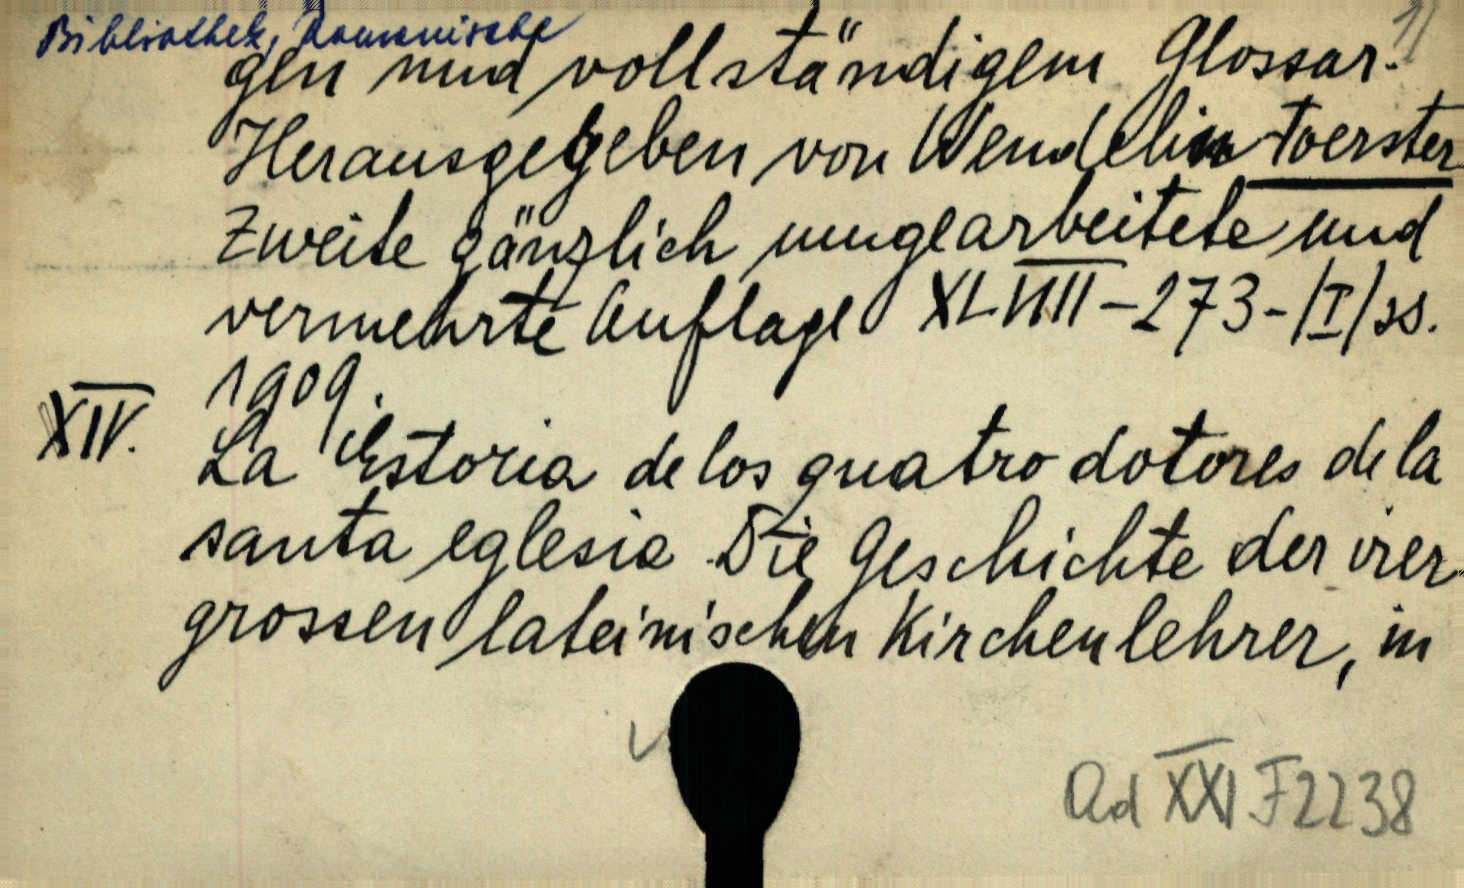 Bibliothek, Romanische
11
gen und vollständigem Glossar.
Herausgegeben von Wendelin Foerster
Zweite gänzlich umgearbeitete und
vermehrte Auflage XLVIII-273-/I/ss.
1909.
XIV. La Estoria de los quatro dotores de la
santa eglesia Die Geschichte der vier
grossen lateinischen Kirchenlehrer, in
Ad XXI.F2238